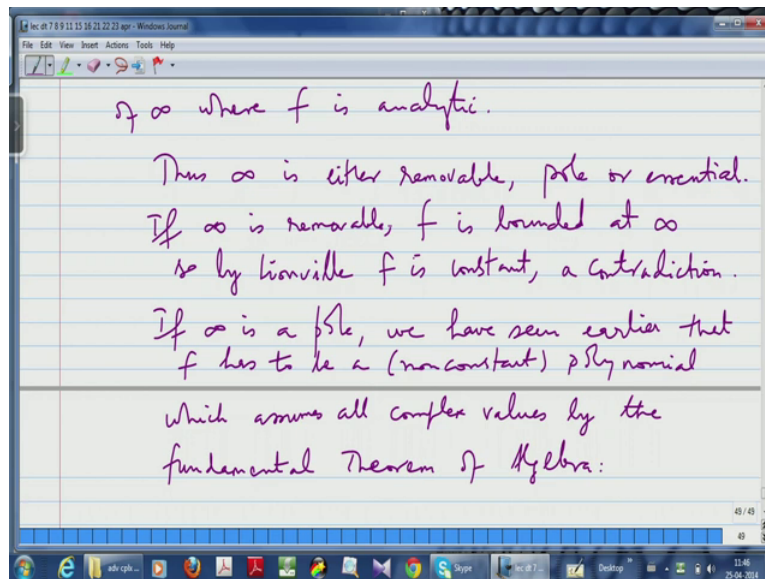 lec dt 7 8 9 11 15 16 21 22 23 apr - Windows Journal
File Edit View Insert Actions Tools Help
of ∞ where f is analytic.
Thus ∞ is either removable, pole or essential.
If ∞ is removable, f is bounded at ∞
so by Liouville f is constant, a contradiction.
If ∞ is a pole, we have seen earlier that
f has to be a (nonconstant) polynomial
which assumes all complex values by the
fundamental Theorem of Algebra:
49 / 49
49
adv cplx... Skype lec dt 7... Desktop 11:46
25-04-2014